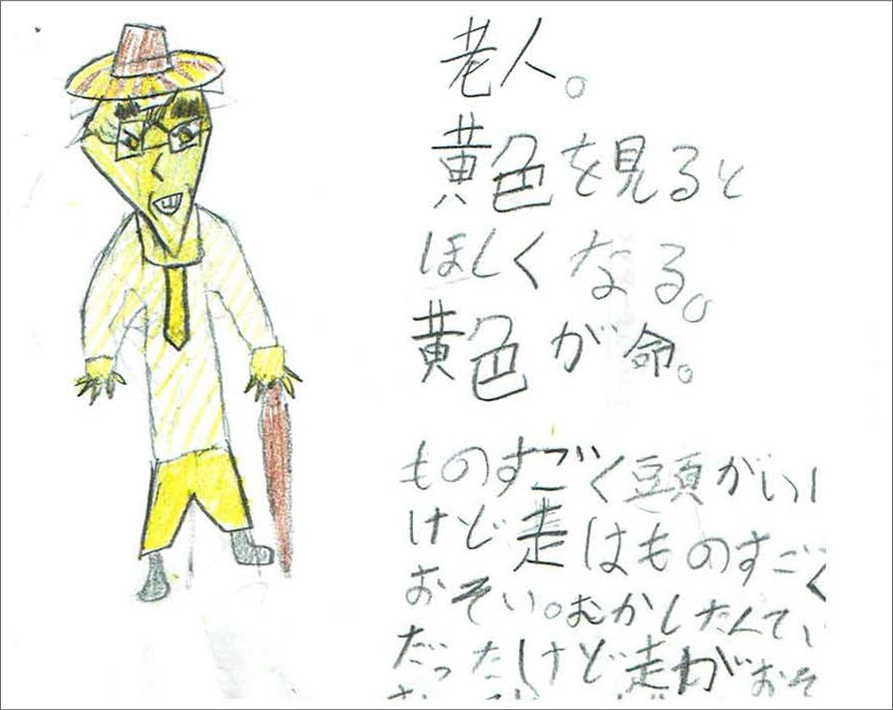 老人。
黄色を見ると
ほしくなる。
黄色が命。
ものすごく頭がいい
けど走はものすごく
おそい。むかしたんてい
だったけど走がおそ